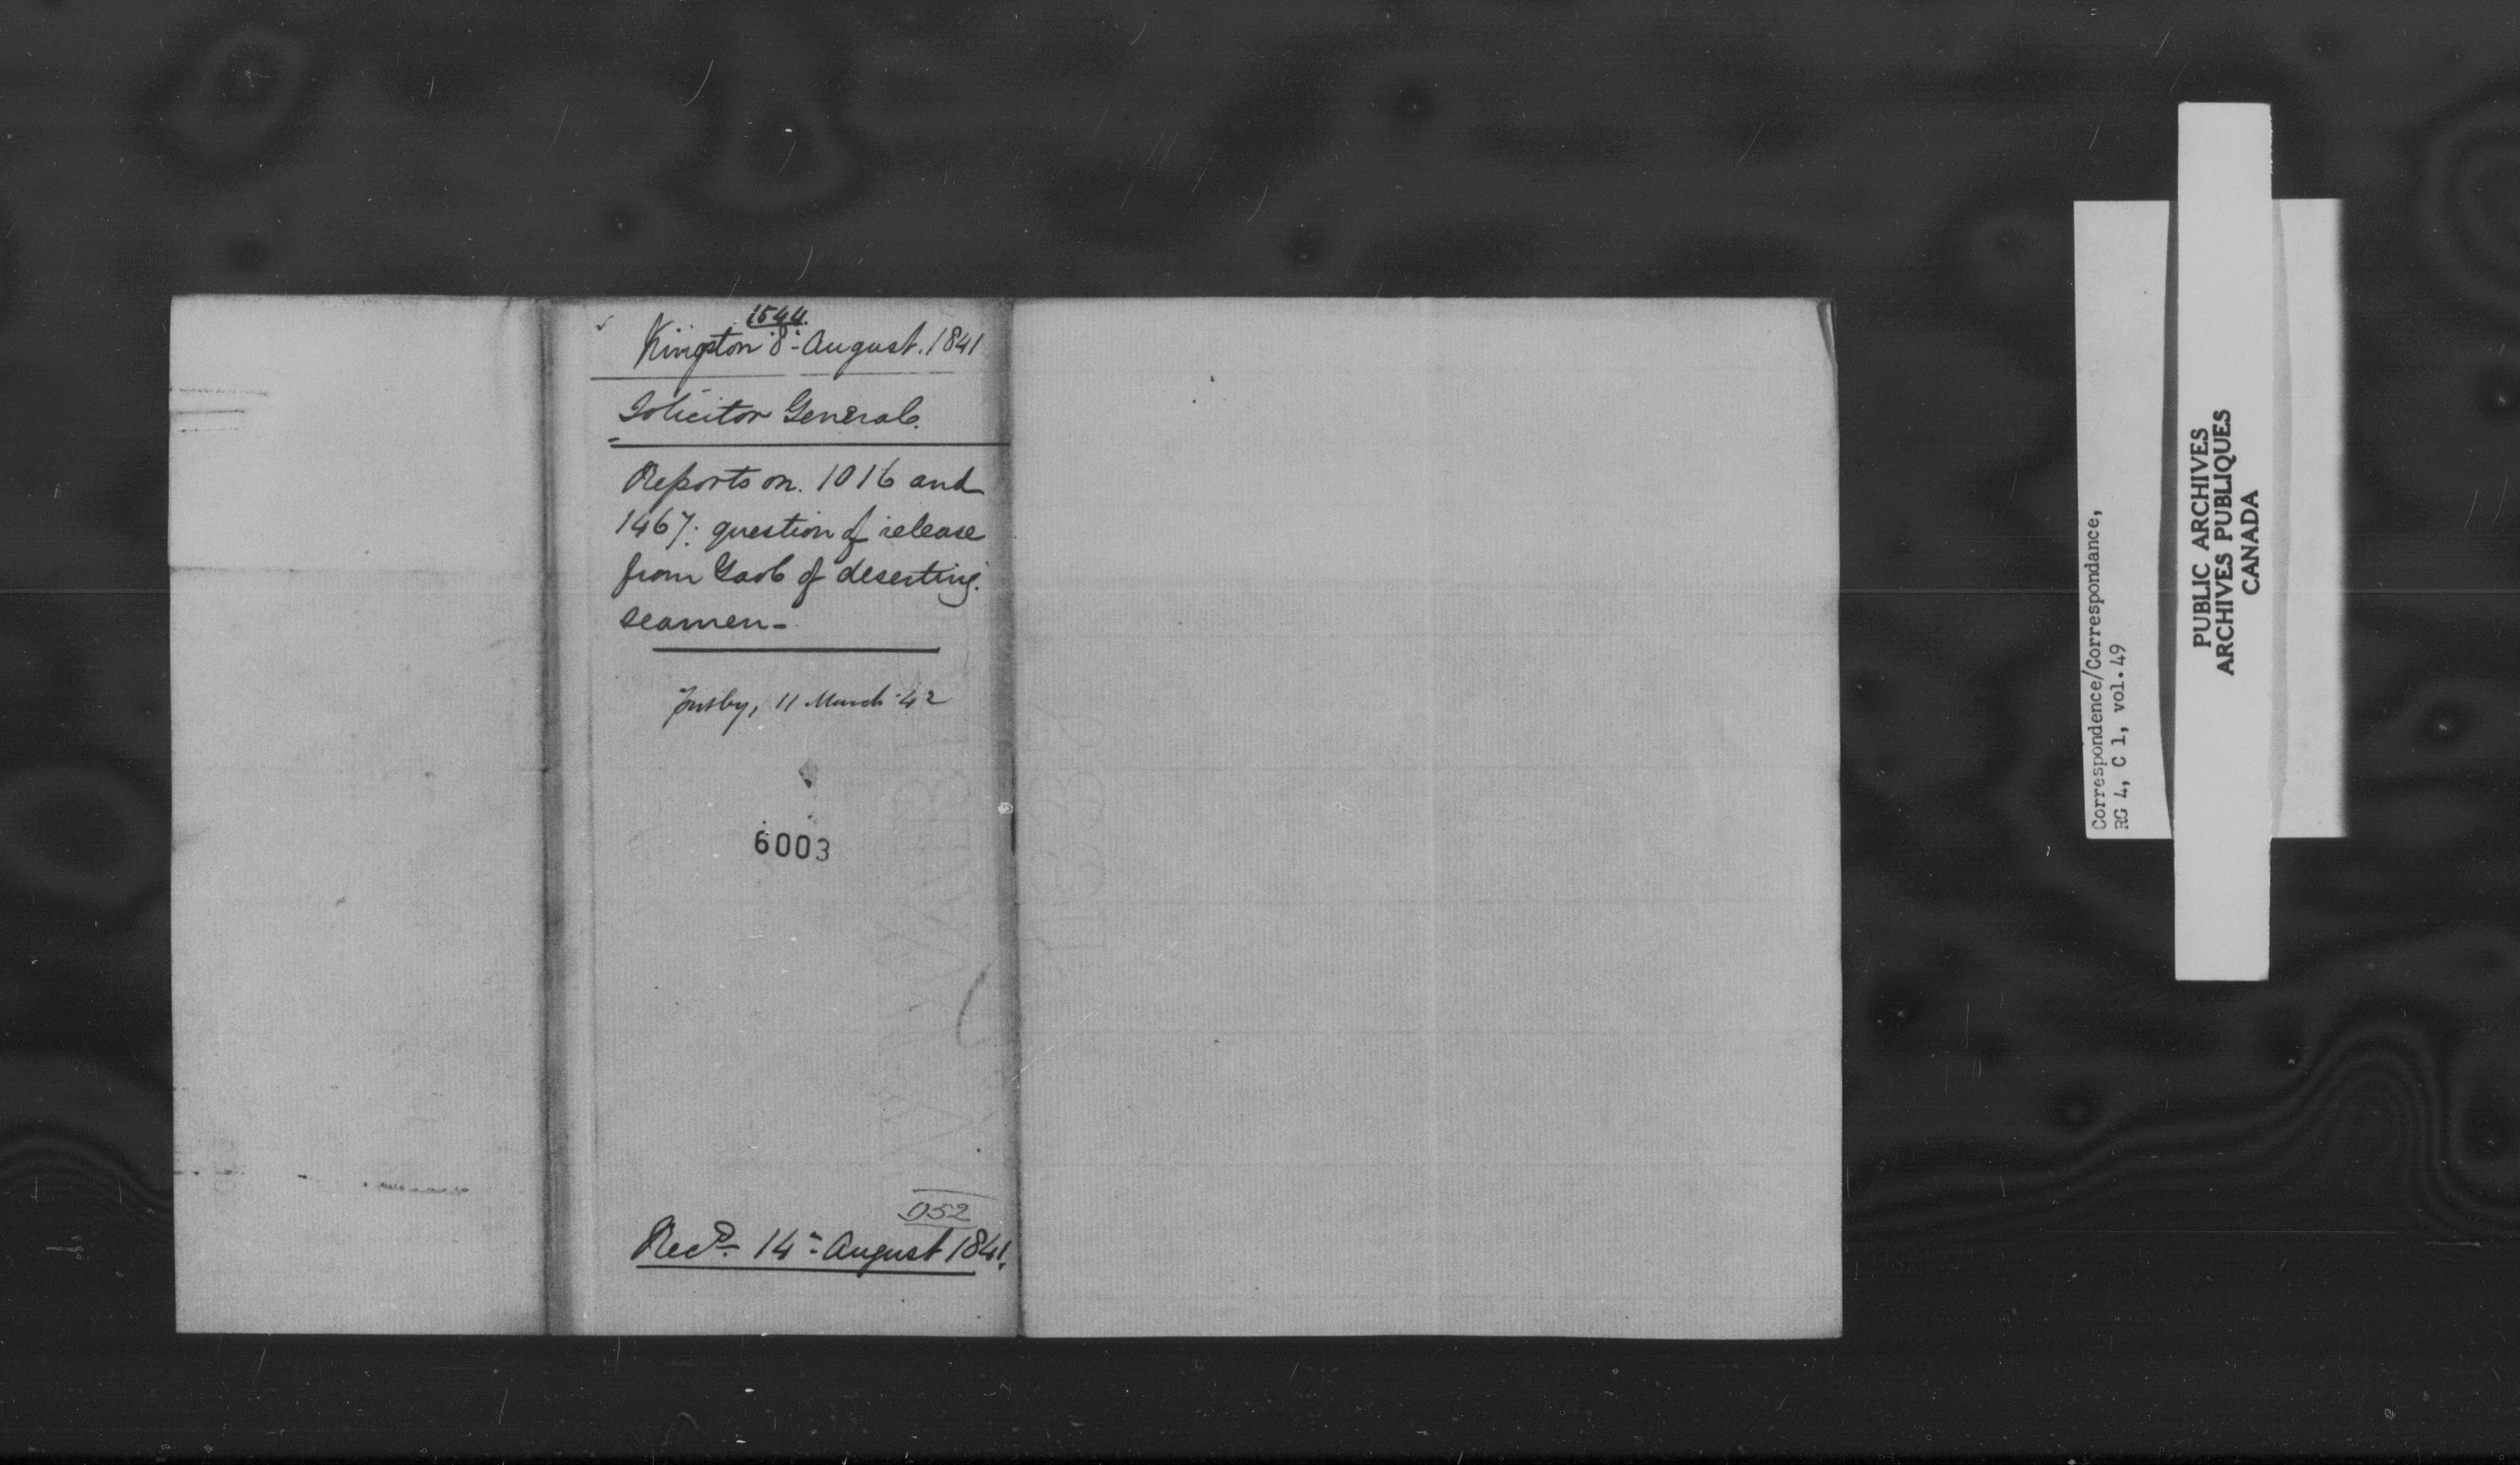 1544.
Kingston 8 - August. 1841
Solicitor General.
Reports on. 1016 and
1467: question of release
from Gaol of deserting
seamen -
11 March '42
6003
D52
Recd. 14 - August 1841.
Correspondence/Correspondance,
RG 4, C 1, vol. 49
PUBLIC ARCHIVES
ARCHIVES PUBLIQUES
CANADA